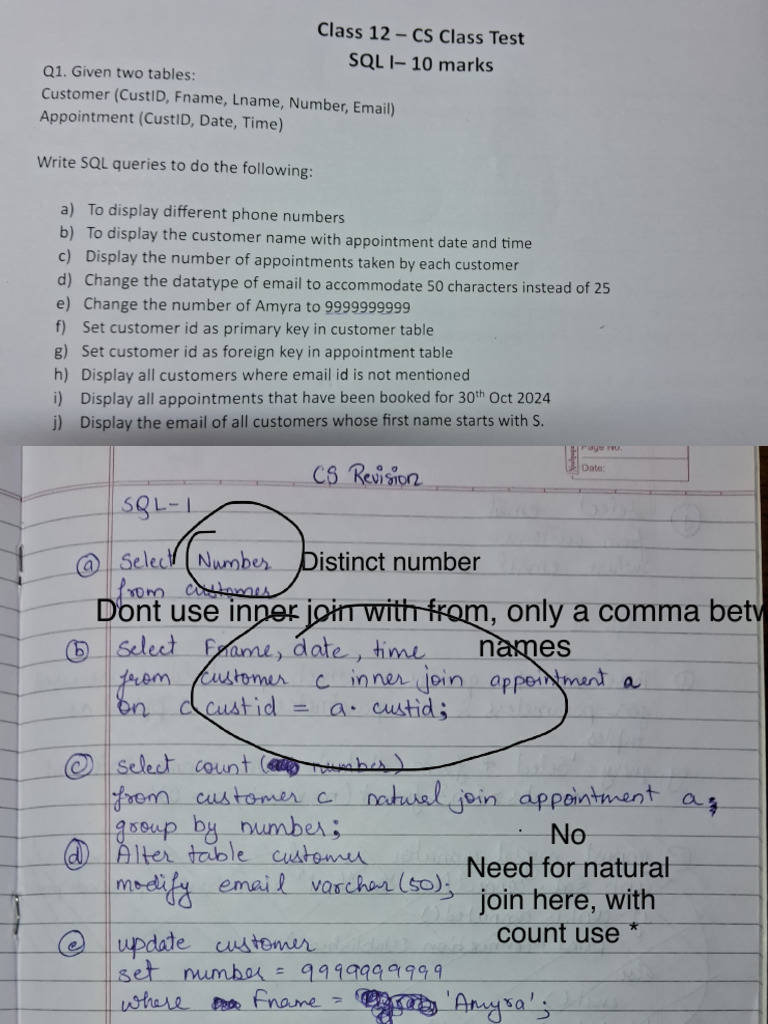 Class 12 – CS Class Test
SQL I– 10 marks
Q1. Given two tables:
Customer (CustID, Fname, Lname, Number, Email)
Appointment (CustID, Date, Time)
Write SQL queries to do the following:
a) To display different phone numbers
b) To display the customer name with appointment date and time
c) Display the number of appointments taken by each customer
d) Change the datatype of email to accommodate 50 characters instead of 25
e) Change the number of Amyra to 9999999999
f) Set customer id as primary key in customer table
g) Set customer id as foreign key in appointment table
h) Display all customers where email id is not mentioned
i) Display all appointments that have been booked for 30th Oct 2024
j) Display the email of all customers whose first name starts with S.
Page No.
Date:
CS Revision
SQL-1
a) Select Number Distinct number
from customer
Dont use inner join with from, only a comma betw
names
b) Select Fname, date, time
from customer c inner join appointment a
on c.custid = a.custid;
c) select count (number)
from customer c natural join appointment a;
group by number;
No
Need for natural
join here, with
count use *
d) Alter table customer
modify email varchar(50);
e) update customer
set number = 9999999999
where Fname = 'Amyra';